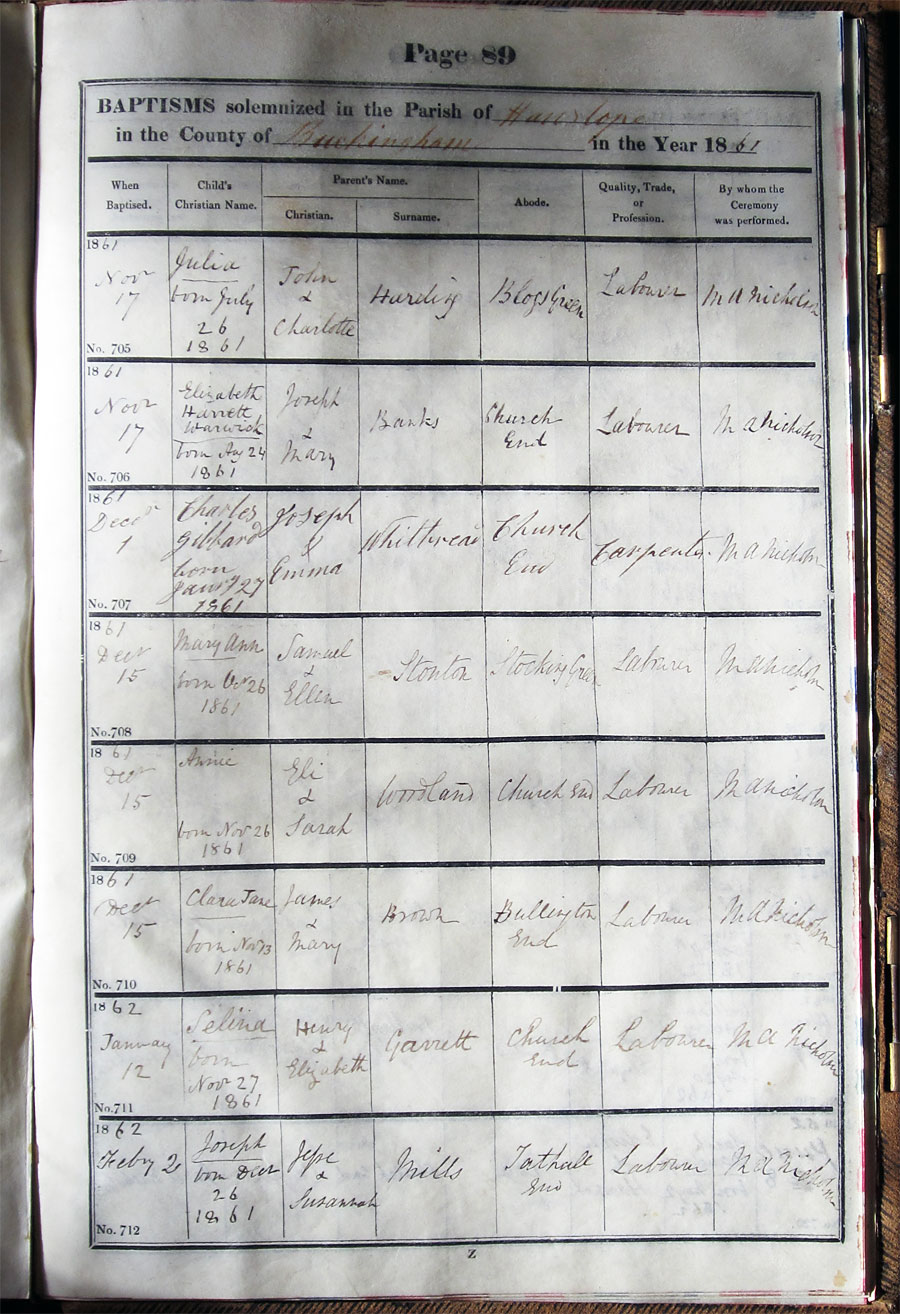 Page 89
BAPTISMS solemnized in the Parish of Hanslope
in the County of Buckingham in the Year 1861
When
Baptised.
Child's
Christian Name.
Parent's Name.
Christian.
Surname.
Abode.
Quality, Trade,
or
Profession.
By whom the
Ceremony
was performed.
1861
Novr
17
No. 705
Julia
born July
26
1861
John
&
Charlotte
Harding
Labourer
M A Nicholson
1861
Novr
17
No. 706
Elizabeth
Harrett
Warwick
born Aug 24
1861
Joseph
&
Mary
Banks
Church
End
Labourer
M A Nicholson
1861
Decr
1
No. 707
Charles
Gibbard
born
Jany 27
1861
Joseph
&
Emma
Whitbread
Church
End
Carpenter
M A Nicholson
1861
Decr
15
No. 708
Mary Ann
born Octr 26
1861
Samuel
&
Ellen
Stonton
Stocking Green
Labourer
M A Nicholson
1861
Decr
15
No. 709
Annie
born Novr 26
1861
Eli
&
Sarah
Woodland
Church End
Labourer
M A Nicholson
1861
Decr
15
No. 710
Clara Jane
born Nov 13
1861
James
&
Mary
Brown
Bullington
End
Labourer
M A Nicholson
1862
January
12
No. 711
Selina
born
Novr 27
1861
Henry
&
Elizabeth
Garrett
Church
End
Labourer
M A Nicholson
1862
Febry 2
No. 712
Joseph
born Decr
26
1861
Jesse
&
Susannah
Mills
Tathall
End
Labourer
M A Nicholson
Z